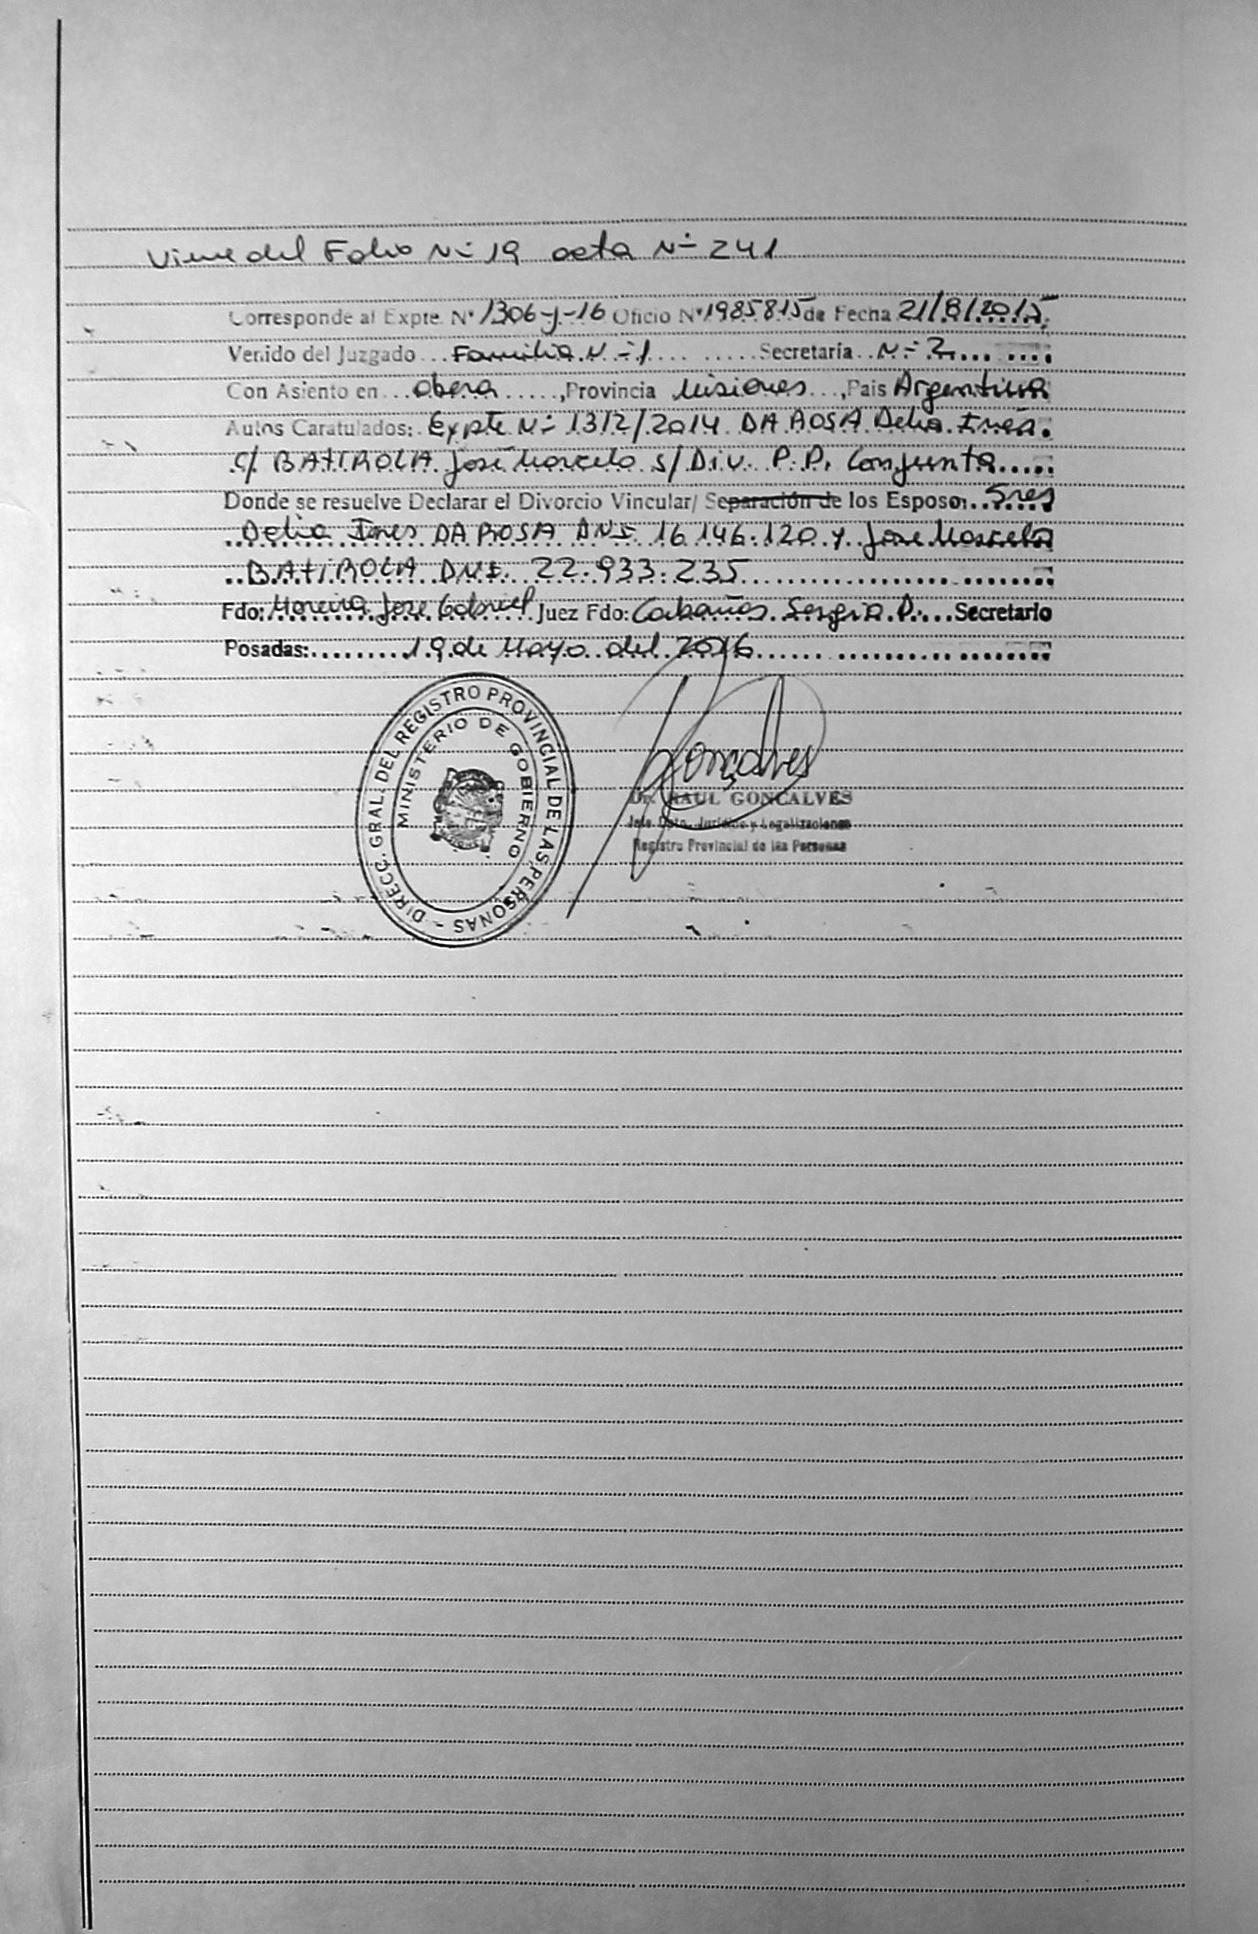 Viene del Folio Nº 19 acta Nº 241
Corresponde al Expte. Nº 1306-J-16 Oficio Nº 1985815 de Fecha 21/8/2015
Venido del Juzgado ... Familia Nº 1 ... Secretaría .. Nº 2 ...
Con Asiento en ... Obera ....., Provincia Misiones ..., Pais Argentina
Autos Caratulados: Expte Nº 1312/2014 DA ROSA Delia Inés
c/ BATIROLA José Marcelo s/ Div. P.P. Conjunta.....
Donde se resuelve Declarar el Divorcio Vincular/ Separación de los Esposo: .. Sres
Delia Ines DA ROSA DNI 16.146.120 y Jose Marcelo
BATIROLA DNI. 22.933.235
Fdo: Moreira Jose Gabriel Juez Fdo: Cabañas Sergio P. ... Secretario
Posadas: ........ 19 de Mayo del 2016
DIRECC. GRAL. DEL REGISTRO PROVINCIAL DE LAS PERSONAS -
MINISTERIO DE GOBIERNO
Gonçalves
Dr. RAUL GONCALVES
Jefe Dpto. Jurídico y Legalizaciones
Registro Provincial de las Personas